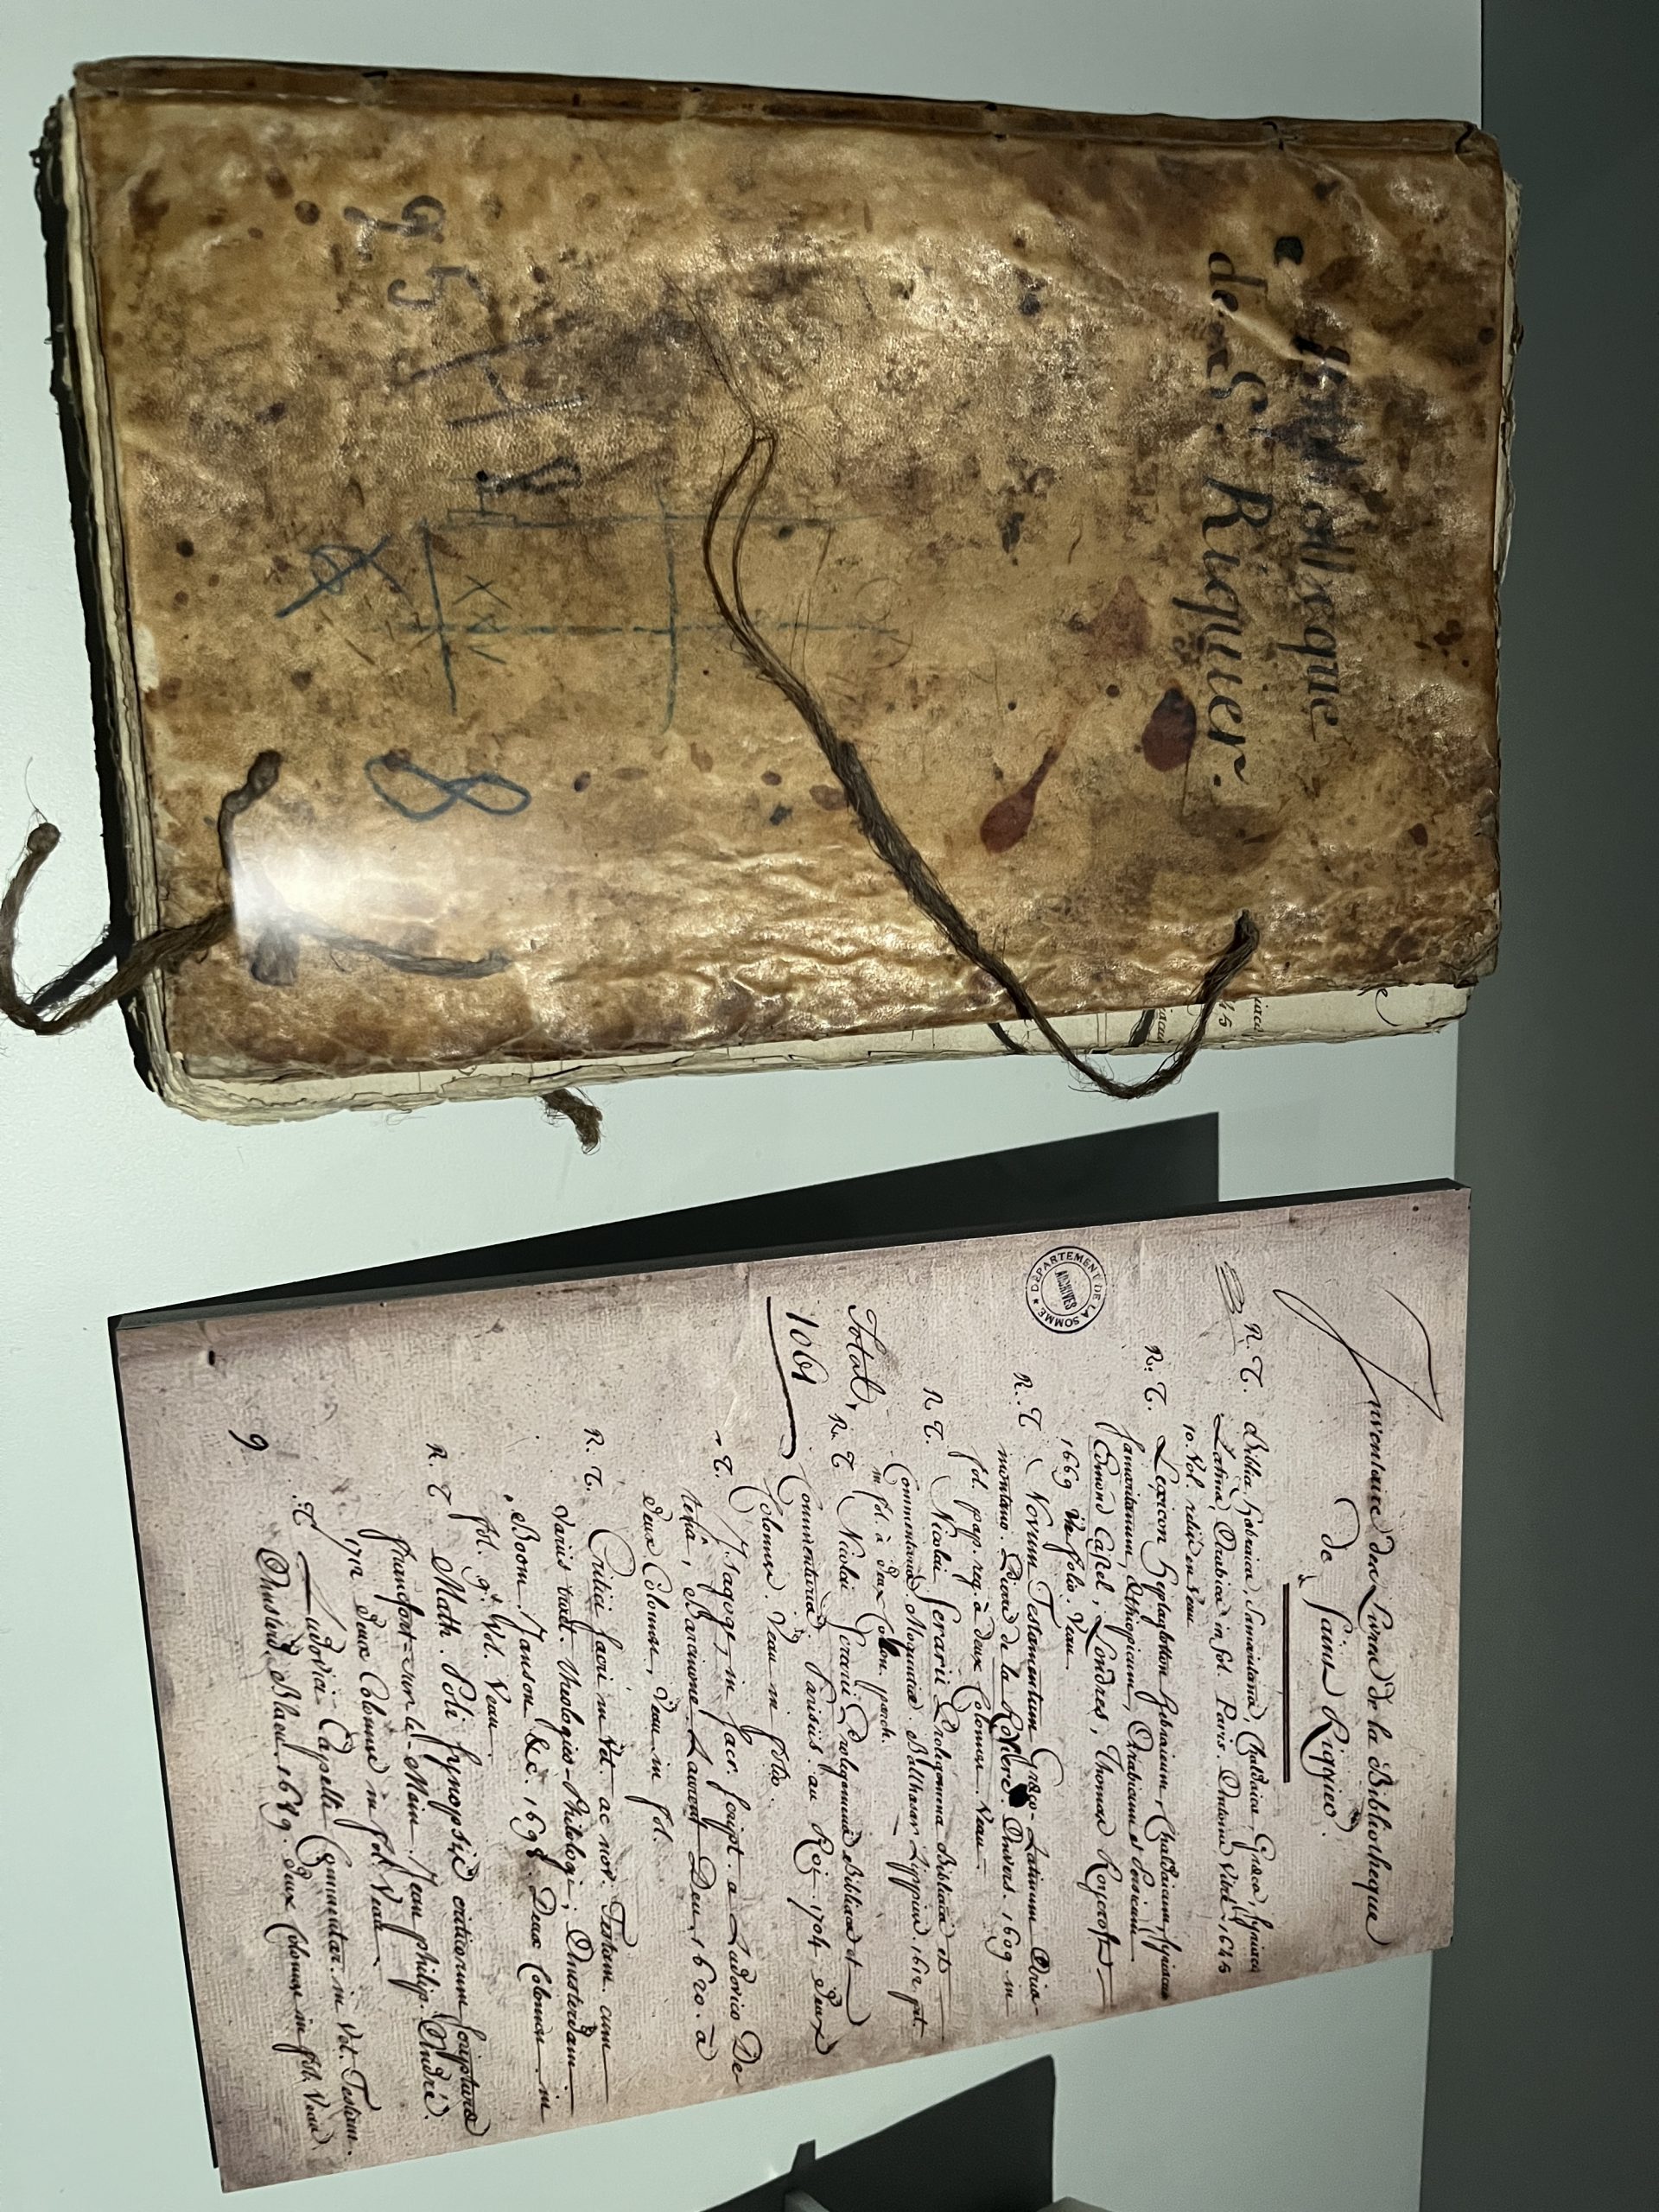 Bibliotecque
de St. Riquier.
95
8
Inventaire des Livres de la Bibliotheque
de Saint Riquier.
R. T. Biblia hebraica, Samaritana, Chaldaica, Græca, Syriaca
Latina, Arabica in fol. Paris. Antoine Vitré. 1645
10. Vol. relié en Veau.
R. T. Lexicon heptaglotton hebraicum, Chaldaicum, Syriacum
Samaritanum, Æthiopicum, Arabicum et Persicum
Edmond Castel, Londres, Thomas Roycroft
1669 folio. Veau.
R. T. Novum Testamentum Græco-Latinum Aria-
montano. Pierre de la Anvers. 1609 in
fol. pap. reg. à deux Colonnes. Veau.
R. T. Nicolai Serarii Prolegomena Biblica et
Commentaria Moguntiæ Balthasar Lippius. 1612 pet.
in fol. à deux Colon. parch.
Total,
1061
R. T. Nicolai Serarii Prolegomena Biblica et
Commentaria. Parisiis. au Roi 1704 deux
Colonnes. Veau in folio.
T. Isagoge in Sacr. Script. a Ludovico De
tena, Barcinone Laurent Deu. 1620. à
deux Colonnes, Veau in fol.
R. T. Critici Sacri in Vet. ac nov. Testam. cum
variis tract. theologico-Philologi; Amsterdam
Boom. Janson &c. 1698. Deux Colonnes in
fol. 9. Vol. Veau.
R. T. Math. Poli Synopsis criticorum Scripturæ
francfort-sur-le-Mein. Jean philip. André.
1712 deux Colonnes in fol. Veau
T. Ludovici Cappelli Commentar. in Vet. Testam.
Amsterd. Blaeu. 1689. deux Colonnes in fol. Veau
9
DÉPARTEMENT DE LA SOMME
ARCHIVES